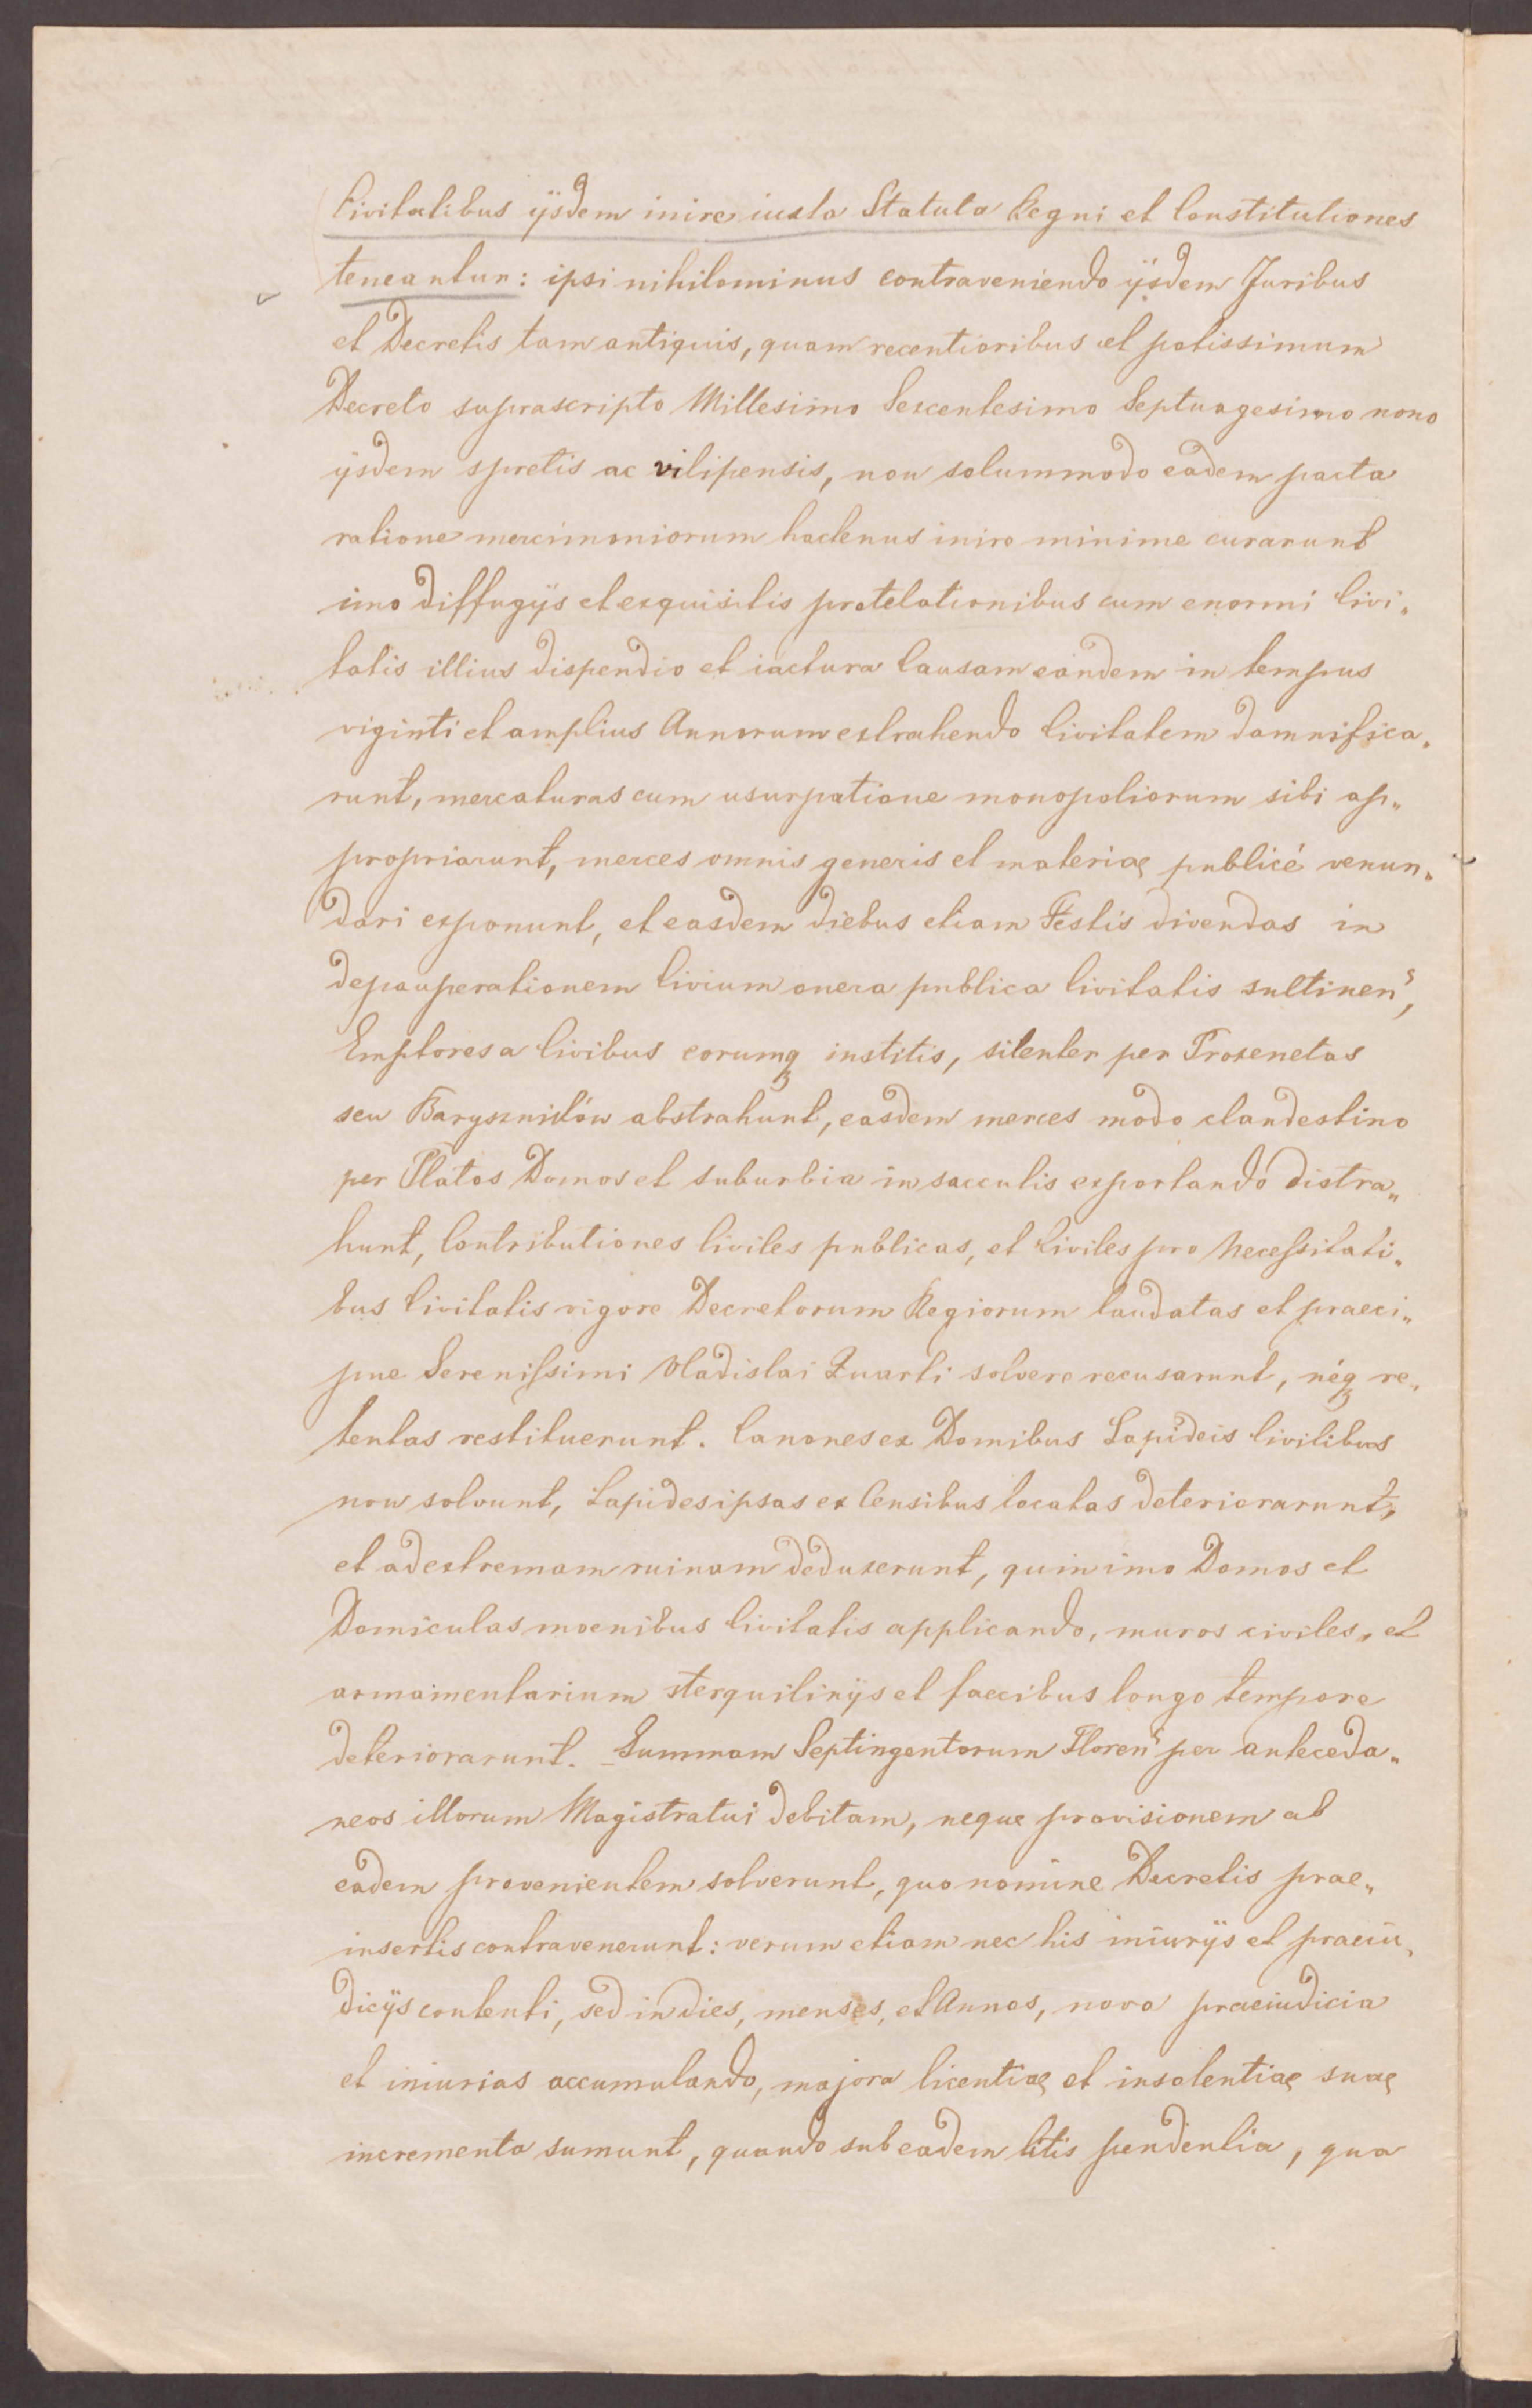 Civitatibus ijsdem inire iuxta Statuta Regni et Constitutiones
teneantur: ipsi nihilominus contraveniendo ijsdem Juribus
et Decretis tam antiquis, quam recentioribus et potissimum
Decreto suprascripto Millesimo Sexcentesimo Septuagesimo nono
ijsdem spretis ac vilipensis, non solummodo eadem pacta
ratione mercimoniorum hactenus inire minime curarunt
imo diffugijs et exquisitis protelationibus cum enormi Civi„
tatis illius dispendio et iactura Causam eandem in tempus
viginti et amplius Annorum extrahendo Civitatem damnifica„
runt, mercaturas cum usurpatione monopoliorum sibi ap„
propriarunt, merces omnis generis et materiae publicé venun„
dari exponunt, et easdem diebus etiam Festis divendas in
depauperationem Civium onera publica Civitatis sultinen̄,
Emptores a Civibus eorumq institis, silenter per Proxenetas
seu Baryszników abstrahunt, easdem merces modo clandestino
per Platos Domos et suburbia in sacculis exportando distra„
hunt, Contributiones Civiles publicas, et Civiles pro Necessitati„
bus Civitatis vigore Decretorum Regiorum laudatas et praeci„
pue Serenissimi Vladislai Quarti solvere recusarunt, néq re„
tentas restituerunt. Canones ex Domibus Lapideis Civilibus
non solvunt, Lapides ipsas ex Censibus locatas deteriorarunt,
et ad extremam ruinam deduxerunt, quinimo Domos et
Domiculas moenibus Civitatis applicando, muros civiles, et
armamentarium sterquilinijs et faecibus longo tempore
deteriorarunt. Summam Septingentorum Floren̄ per anteceda„
neos illorum Magistratui debitam, neque provisionem ab
eadem provenientem solverunt, quo nomine Decretis prae„
insertis contravenerunt: verum etiam nec his iniurijs et praeiu„
dicijs contenti, sed in dies, menses, et Annos, nova praeiudicia
et iniurias accumulando, majora licentiae et insolentiae suae
incrementa sumunt, quando sub eadem litis pendentia, qua